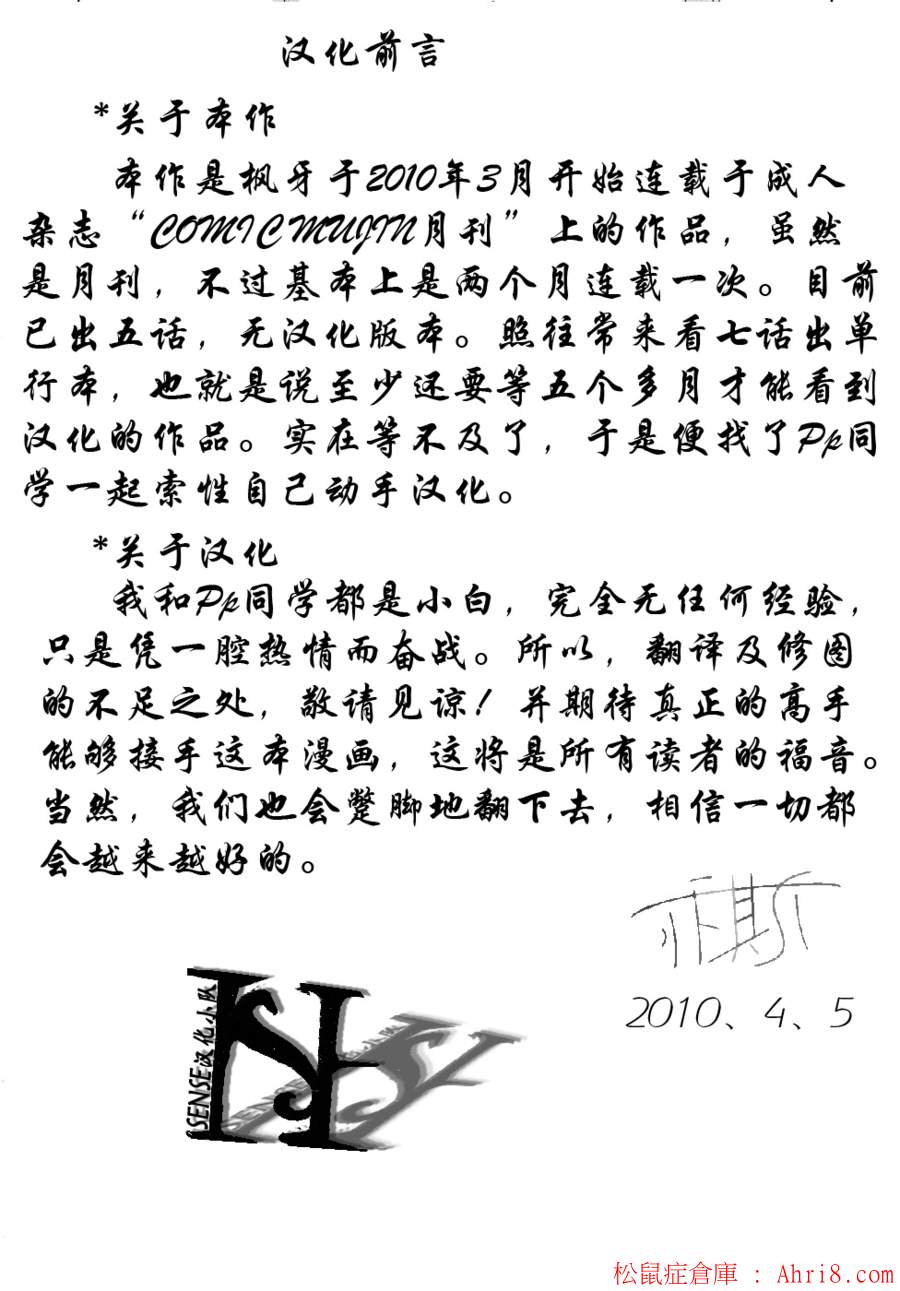 汉化前言
*关于本作
本作是枫牙于2010年3月开始连载于成人
杂志“COMIC MUJIN月刊”上的作品，虽然
是月刊，不过基本上是两个月连载一次。目前
已出五话，无汉化版本。照往常来看七话出单
行本，也就是说至少还要等五个多月才能看到
汉化的作品。实在等不及了，于是便找了Pp同
学一起索性自己动手汉化。
*关于汉化
我和Pp同学都是小白，完全无任何经验，
只是凭一腔热情而奋战。所以，翻译及修图
的不足之处，敬请见谅！并期待真正的高手
能够接手这本漫画，这将是所有读者的福音。
当然，我们也会蹩脚地翻下去，相信一切都
会越来越好的。
2010、4、5
SENSE汉化小队
松鼠症倉庫 : Ahri8.com